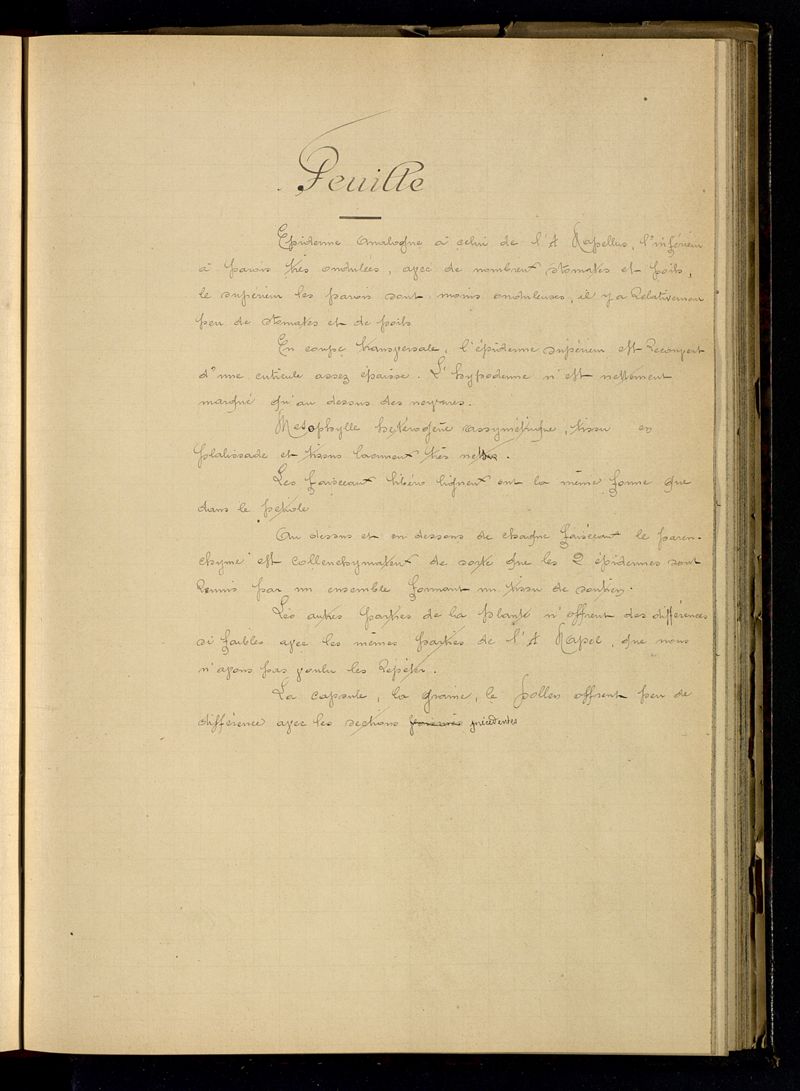 Feuille
Epiderme Analogue à celui de l'A Napellus, l'inférieur
à parois très ondulées, avec de nombreux stomates et poils,
le supérieur les parois sont moins onduleuses, il y a Relativement
peu de stomates et de poils
En coupe transversale, l'épiderme supérieur est Recouvert
d'une cuticule assez épaisse. L'hypoderme n'est nettement
marqué qu'au dessus des nervures.
Mesophylle hétérogène assymétrique, tissu en
palissade et tissus lacuneux très nets.
Les faisceaux libéro ligneux ont la même forme que
dans le pétiole
Au dessus et en dessous de chaque faisceaux le paren-
chyme est collenchymateux de sorte que les 2 épidermes sont
Réunis par un ensemble formant un tissu de soutien.
Les autres parties de la plante n'offrent des différences
si faibles avec les mêmes parties de l'A Napel, que nous
n'avons pas voulu les Répéter.
La capsule, la graine, le pollen offrent peu de
différence avec les sections précédentes